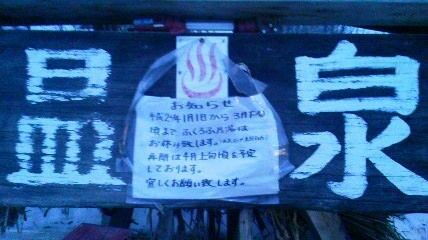 温泉
お知らせ
平成24年1月1日から3月下旬
頃まで ふくろふ乃湯は
お休み致します。
再開は4月上旬頃を予定
しております。
宜しくお願い致します。